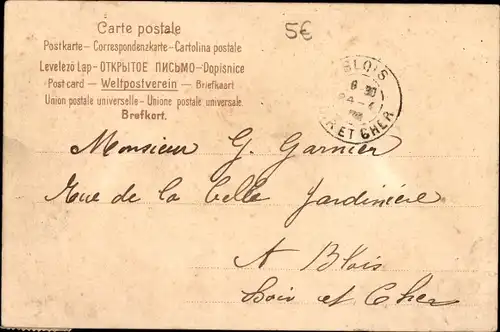 Carte postale
5€
Postkarte - Correspondenzkarte - Cartolina postale
Levelező Lap - ОТКРЫТОЕ ПИСЬМО - Dopisnice
Post card - Weltpostverein - Briefkaart
Union postale universelle - Unione postale universale.
Brefkort.
BLOIS
24 - 4
LOIR ET CHER
Monsieur G. Garnier
Rue de la belle Jardinière
A Blois
Loir et Cher